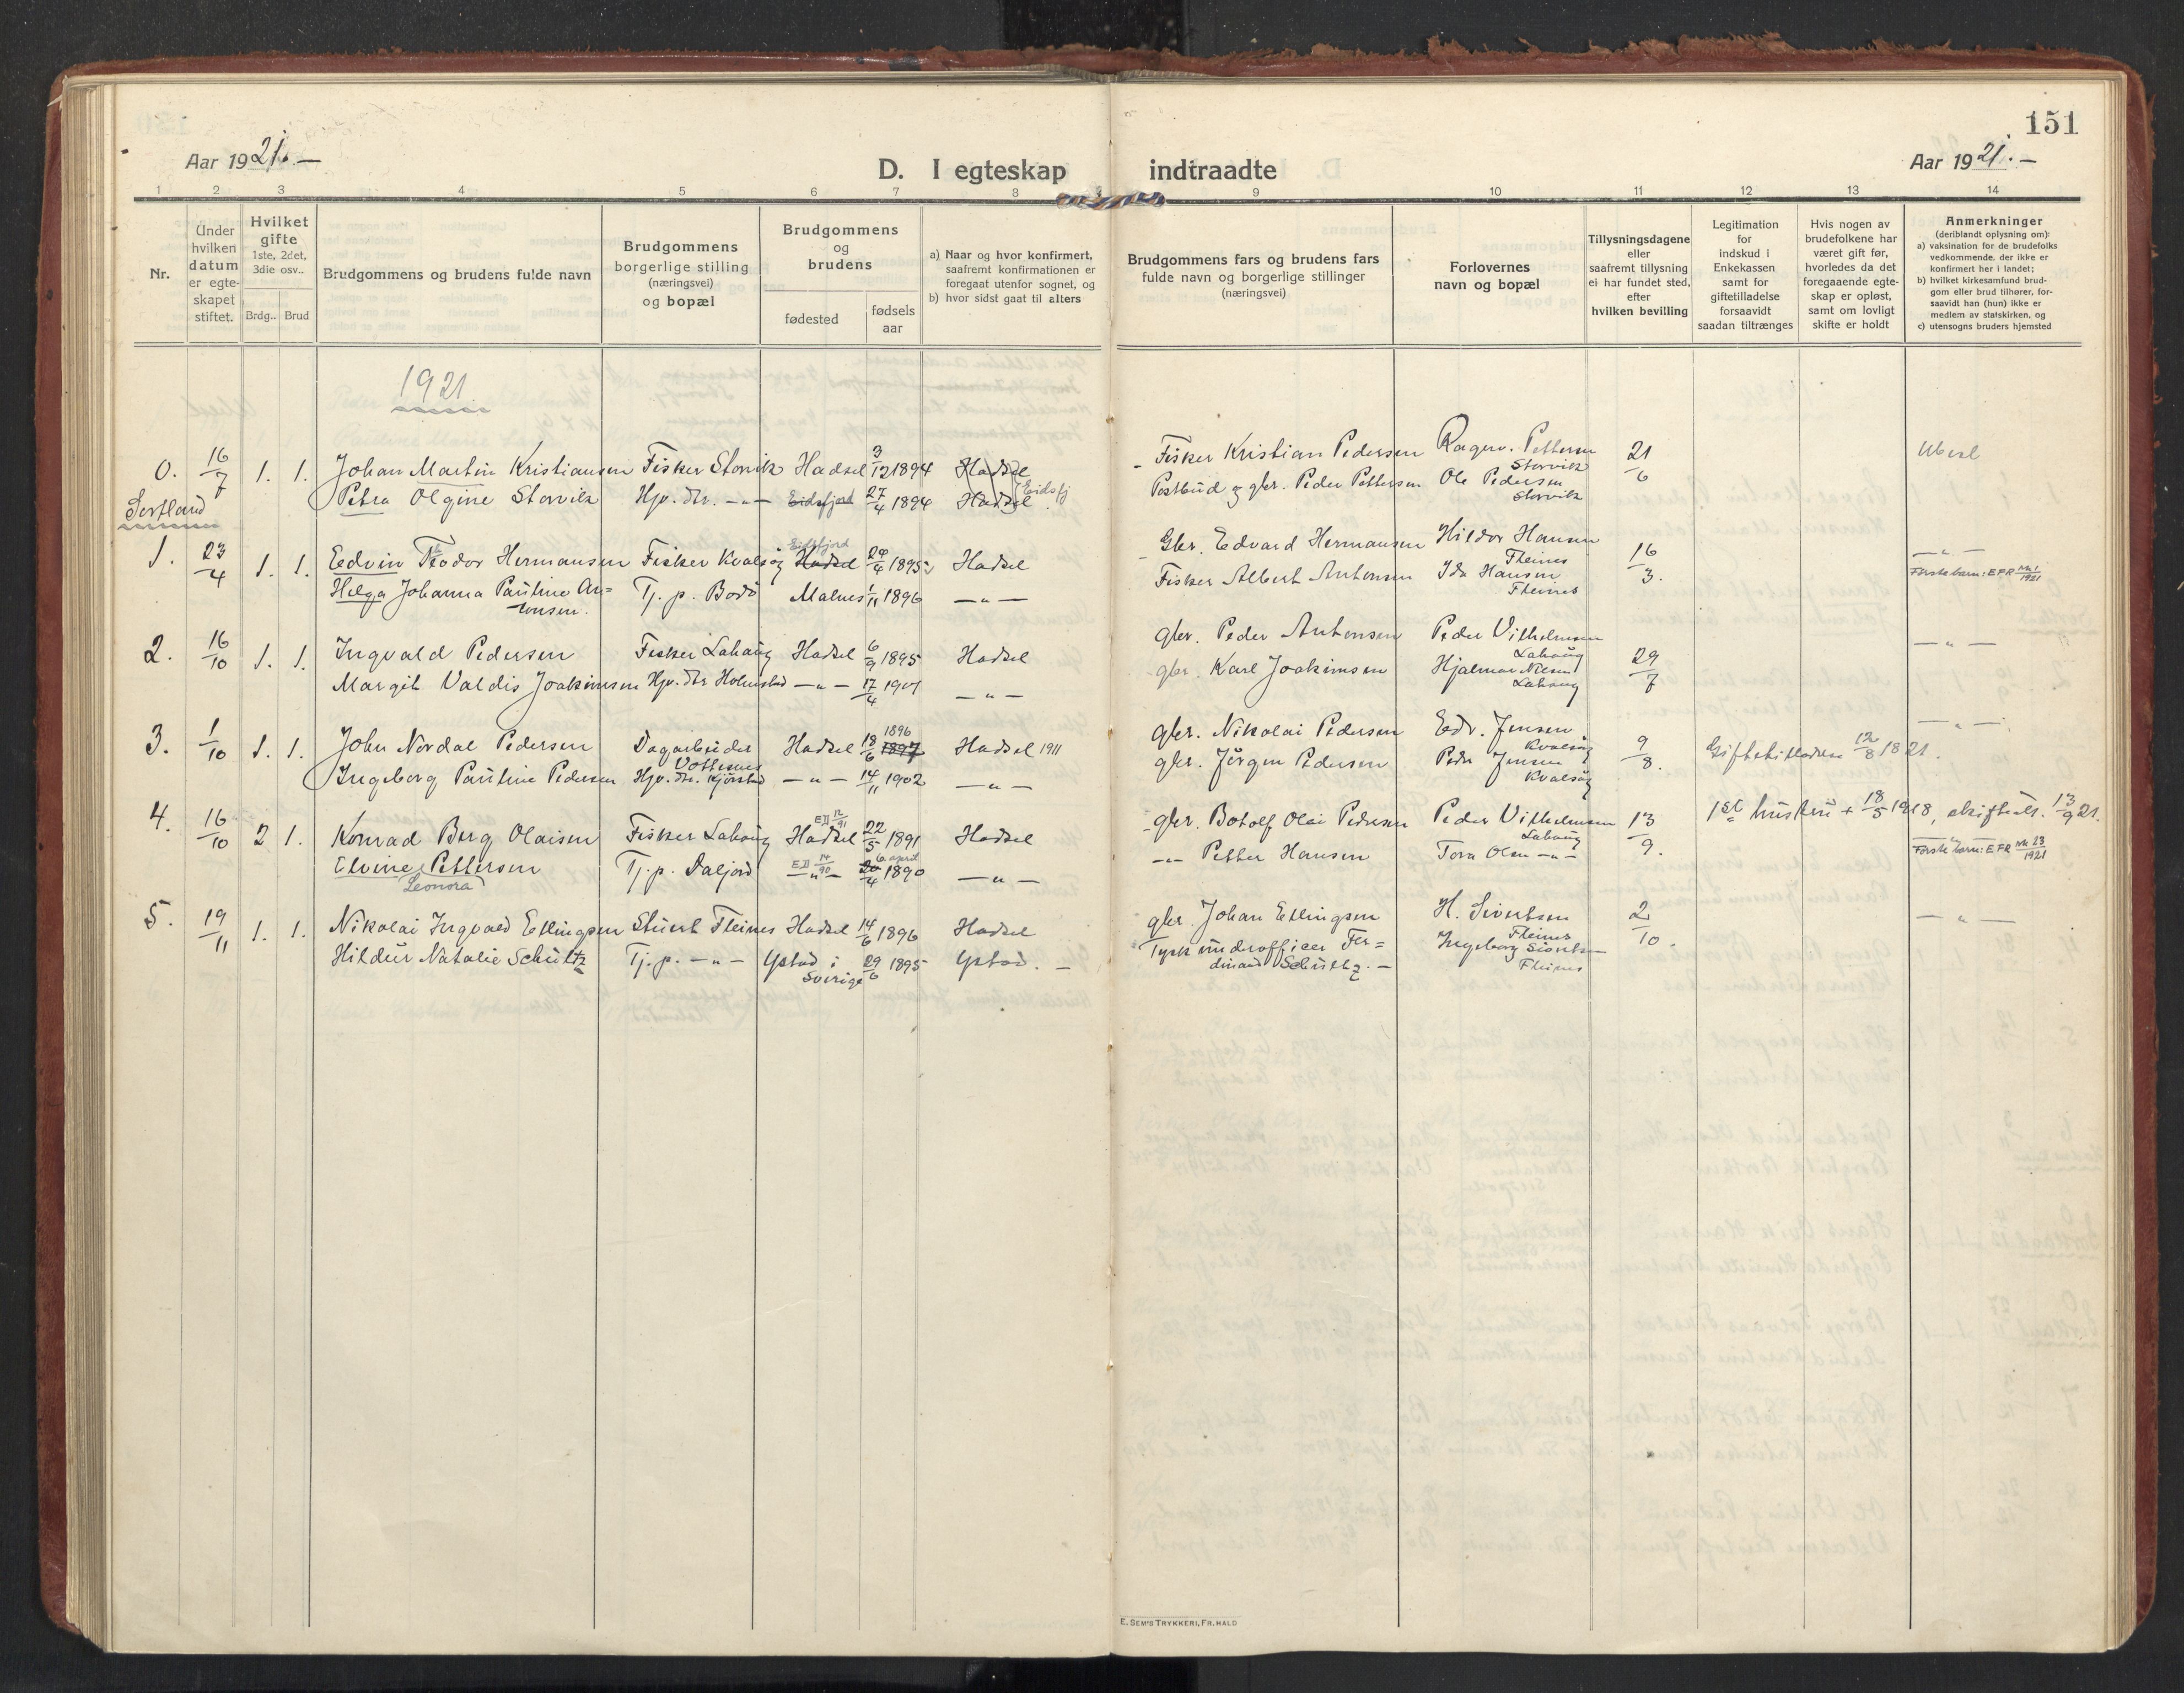 151
Aar 1921.—
D. I egteskap indtraadte
Aar 1921.—
1 2 3 4 5 6 7 8 9 10 11 12 13 14
Nr.
Under hvilken datum er egteskapet stiftet.
Hvilket gifte 1ste, 2det, 3die osv..
Brdg.. Brud
Brudgommens og brudens fulde navn
Brudgommens borgerlige stilling (næringsvei) og bopæl
Brudgommens og brudens
fødested
fødsels aar
a) Naar og hvor konfirmert, saafremt konfirmationen er foregaat utenfor sognet, og
b) hvor sidst gaat til alters
Brudgommens fars og brudens fars fulde navn og borgerlige stillinger (næringsvei)
Forlovernes navn og bopæl
Tillysningsdagene eller saafremt tillysning ei har fundet sted, efter hvilken bevilling
Legitimation for indskud i Enkekassen samt for giftetilladelse forsaavidt saadan tiltrænges
Hvis nogen av brudefolkene har været gift før, hvorledes da det foregaaende egteskap er opløst, samt om lovligt skifte er holdt
Anmerkninger
(deriblandt oplysning om):
a) vaksination for de brudefolks vedkommende, der ikke er konfirmert her i landet;
b) hvilket kirkesamfund brudgom eller brud tilhører, forsaavidt han (hun) ikke er medlem av statskirken, og
c) utensogns bruders hjemsted
1921
0. 16/7 1. 1. Johan Martin Kristiansen Fisker Storvik Hadsel 3/12 1894 Hadsel Fisker Kristian Pedersen Ragnv. Pettersen Storvik 21/6
Sortland
Petra Olgine Storvik Hjv. dtr. —"— Eidsfjord 27/4 1894 Hadsel Eidsfj. Postbud og gbr. Peder Pettersen Ole Pedersen Storvik
1. 23/4 1. 1. Edvin Teodor Hermansen Fisker Kvalsøy Hadsel Eidsfjord 24/4 1895 Hadsel Gbr. Edvard Hermansen Hildor Hansen Fleines 16/3. —"—
Helga Johanna Pauline Antonsen. Tj. p. Bodø Malnes 1/11 1896 —"— Fisker Albert Antonsen Ida Hansen Fleines Første barn: EFR Nr. 1 1921
2. 16/10 1. 1. Ingvald Pedersen Fisker Lahaug Hadsel 6/9 1895 Hadsel gbr. Peder Antonsen Peder Vilhelmsen Lahaug 29/7 —"—
Margit Valdis Joakimsen Hjv. dtr Holmstad —"— 17/4 1901 —"— gbr. Karl Joakimsen Hjalmar Nilsen Lahaug
3. 1/10 1. 1. John Nordal Pedersen Dagarbeider Vottesnes Hadsel 18/6 1897 1896 Hadsel 1911 gbr. Nikolai Pedersen Edv. Jensen Kvalsøy 9/8. Giftetilladelse 12/8 1821. —"—
Ingeborg Pauline Pedersen Hjv. dtr. Kjørstad —"— 14/11 1902 —"— gbr. Jørgen Pedersen Peder Jensen Kvalsøy
4. 16/10 2 1. Konrad Berg Olaisen Fisker Lahaug Hadsel 22/5 1891 Hadsel gbr. Botolf Olai Pedersen Peder Vilhelmsen Lahaug 13/9. 1st hustru + 18/5 1918, skifteatt. 13/9 21.
Elvine Leonora Pettersen Tj. p. Daljord —"— 20/4 6. april 1890 —"— —"— Petter Hansen Tora Olsen —"— Første barn: EFR Nr. 23 1921
5. 19/11 1. 1. Nikolai Ingvald Ellingsen Stuert Fleines Hadsel 14/6 1896 Hadsel gbr. Johan Ellingsen H. Sivertsen Fleines 2/10. —"—
Hildur Natalie Schultz Tj. p. —"— Ystad i Sverige 29/6 1895 Ystad. — Tysk underofficer Ferdinand Schultz. — Ingeborg Sivertsen Fleines
E. SEM'S TRYKKERI, FR.HALD